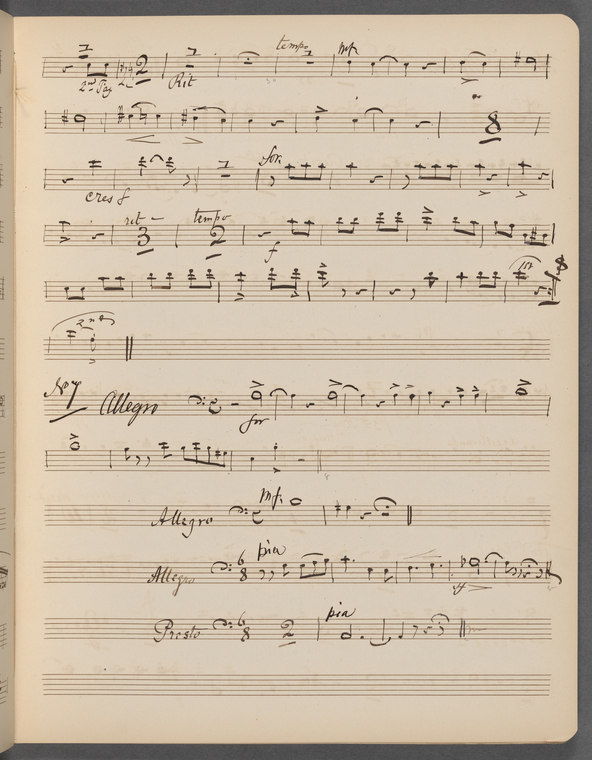 2 Rit tempo mf
8
for
cres f
rit tempo
3 2 f
1st
2nd
No 7 Allegro for
Allegro mf
Allegro 6 8 pia
ff
Presto 6 8 2 pia